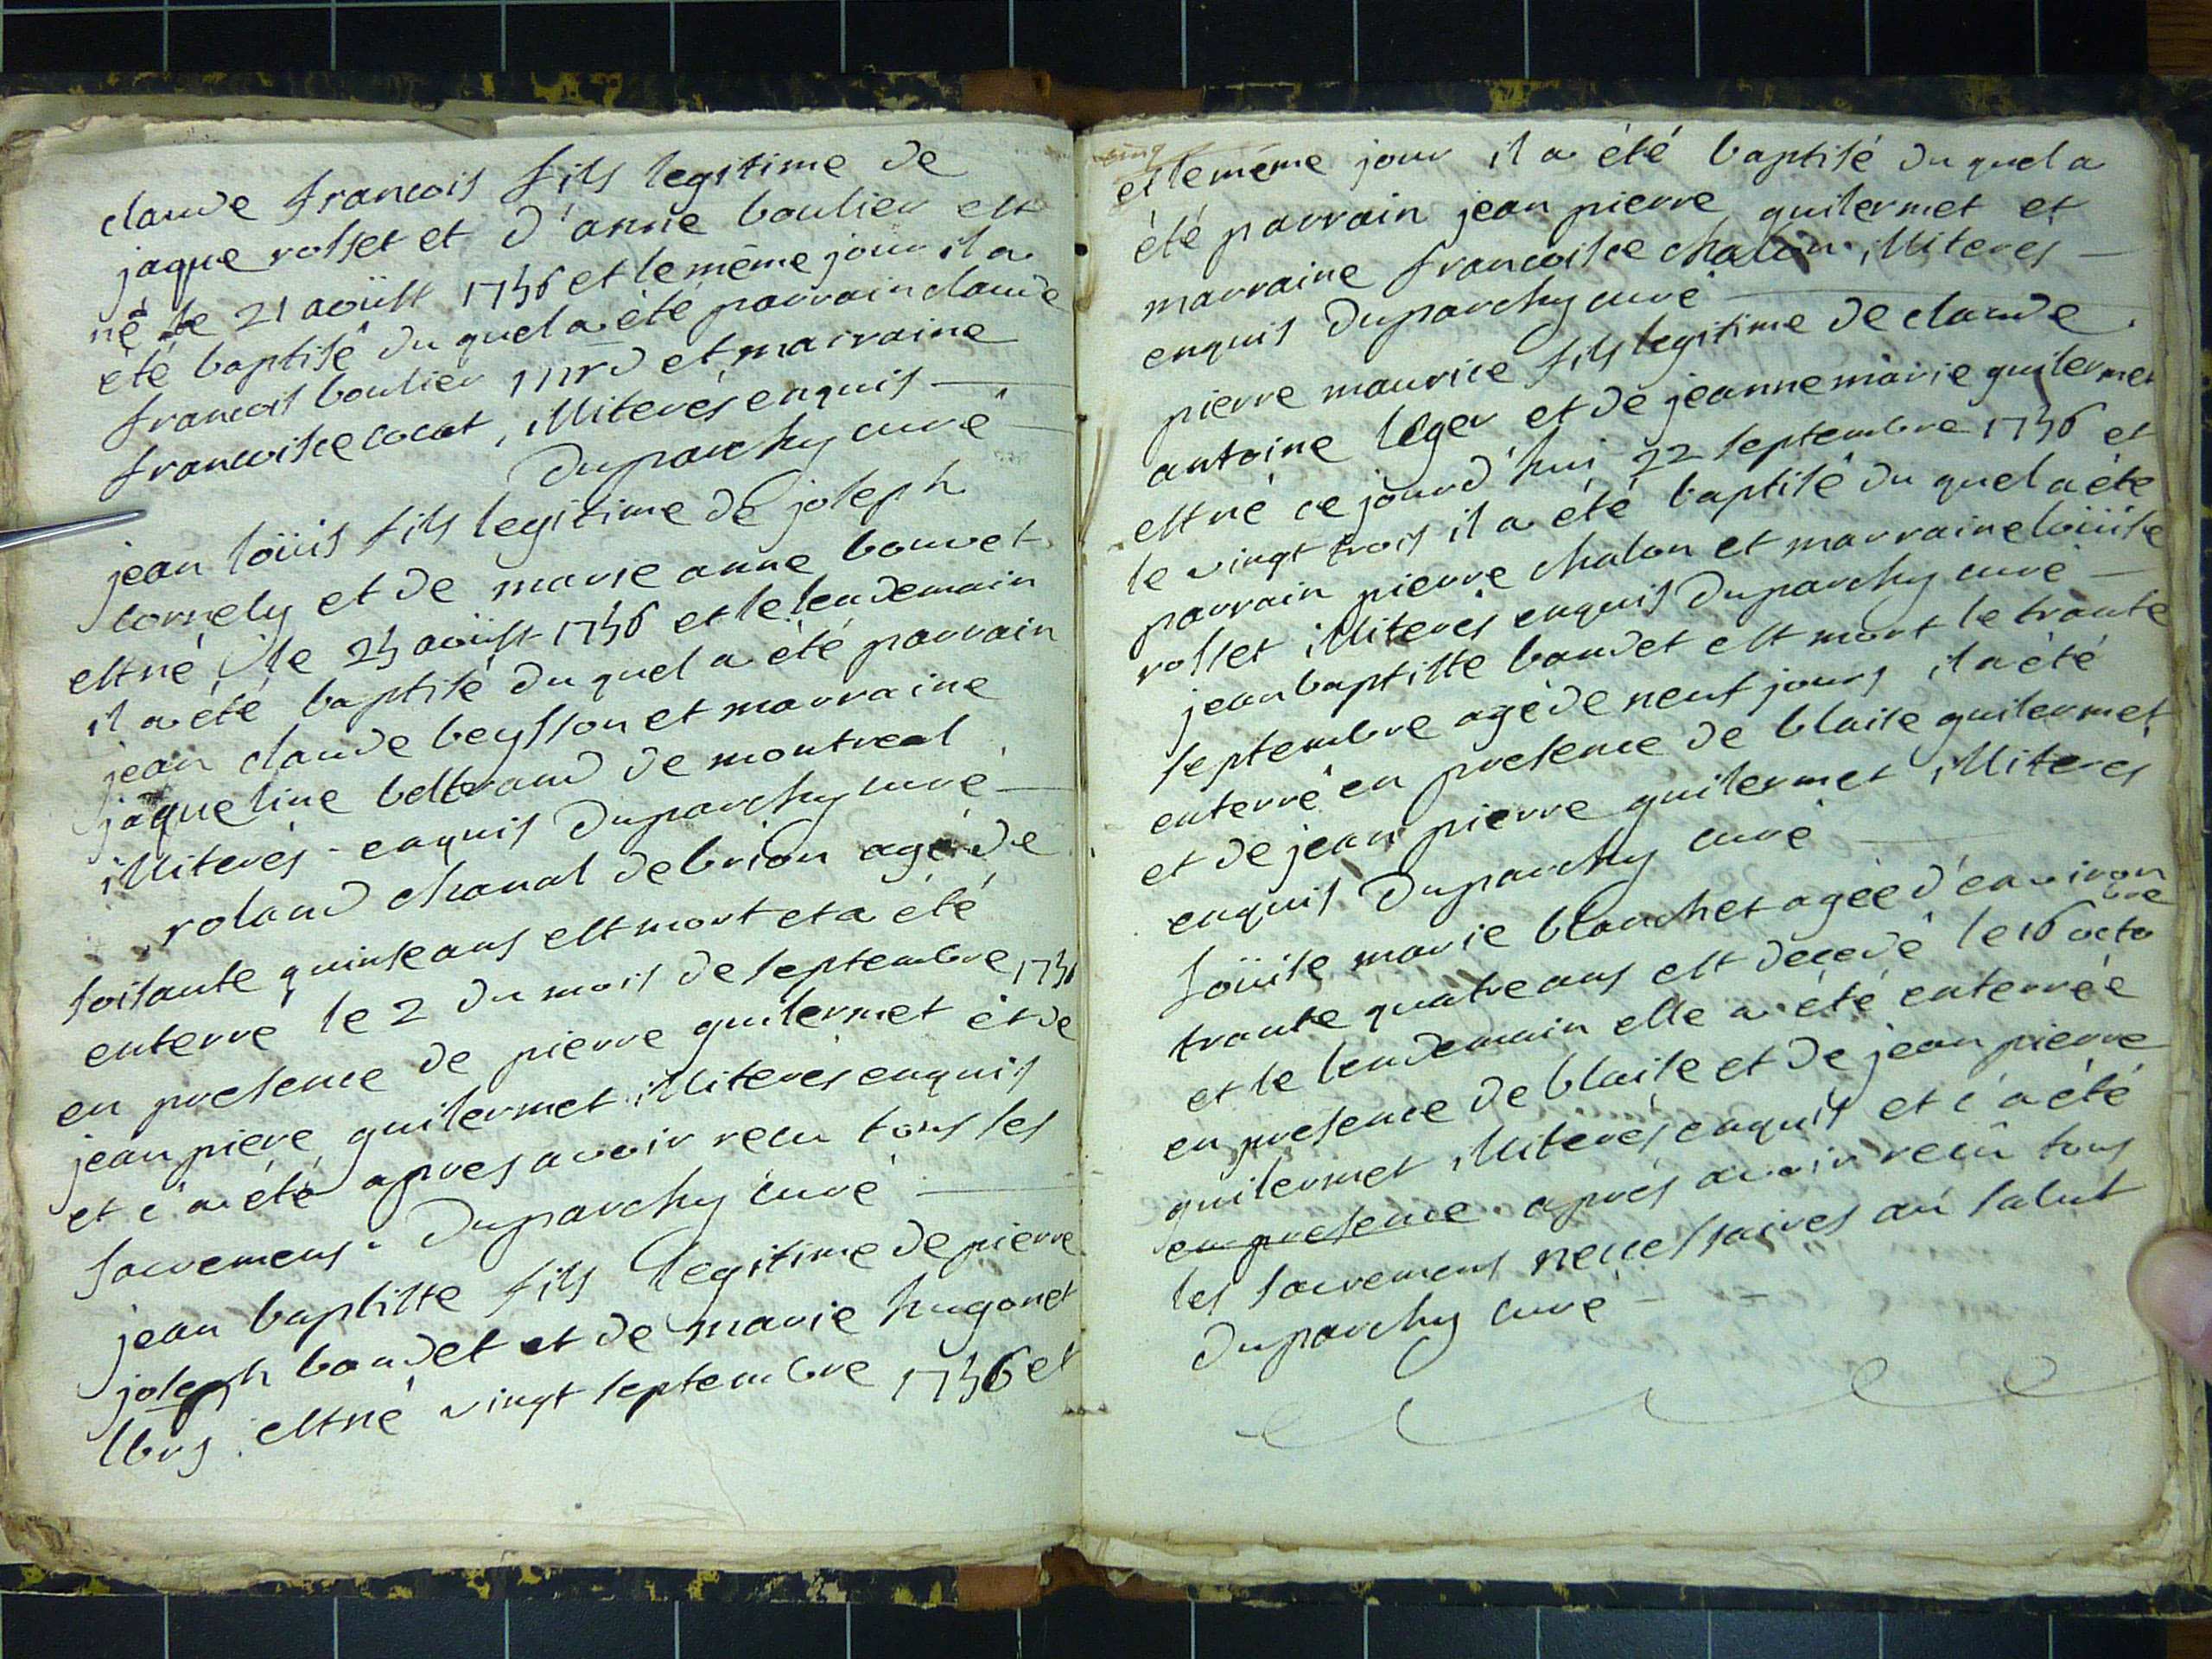 claude francois fils legitime de
jaque rosset et d'anne boulier est
né le 21 aoüst 1756 et le même jour il a
été baptisé du quel a été parrain claude
francois boulier et marraine
francoise cocat, illiterés enquis
Duparchy curé
jean loüis fils legitime de joseph
cornely et de marie anne bouvet
est né le 25 aoüst 1756 et le lendemain
il a été baptisé du quel a été parrain
jean claude beysson et marraine
jaqueline beltrand de montreal
illiterés - enquis Duparchy curé
roland chanal de brion agé de
soisante quinse ans est mort et a été
enterré le 2 du mois de septembre 1756
en presence de pierre guilermet et de
jean piere guilermet illiterés enquis
et c'a été apres avoir recu tous les
sacremens. Duparchy curé
jean baptiste fils legitime de pierre
joseph baudet et de marie hugonet
est né vingt septembre 1756 et
et le même jour il a été baptisé du quel a
été parrain jean pierre guilermet et
marraine francoise chalon illiterés
enquis Duparchy curé
pierre maurice fils legitime de claude
antoine leger et de jeanne marie guilermet
est né ce jourd'hui 22 septembre 1756 et
le vingt trois il a été baptisé du quel a été
parrain pierre chalon et marraine loüise
rosset illiterés enquis Duparchy curé
jean baptiste baudet est mort le trante
septembre agé de neuf jours il a été
enterré en presence de blaise guilermet
et de jean pierre guilermet illiterés
enquis Duparchy curé
Loüise marie blanchet agée d'environ
trante quatre ans est decedé le 16 octobre
et le lendemain elle a été enterrée
en presence de blaise et de jean pierre
guilermet illiterés enquis et c'a été
en presence aprés avoir recû tous
les sacremens necessaires au salut
Duparchy curé